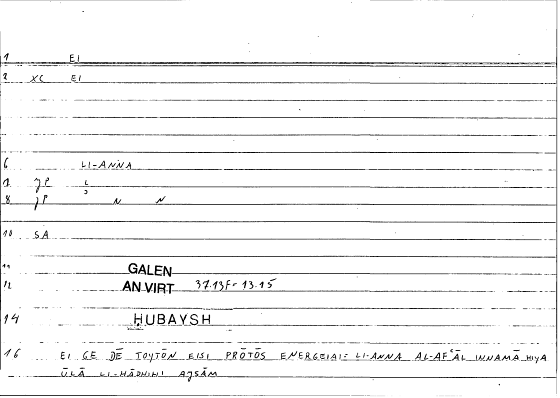 1 EI
2 XC EI
6 LI-ANNA
7 JP L
8 JP N N
10 SA
11 GALEN
12 AN VIRT 37.13F-13.15
14 ḤUBAYSH
16 EI GE DĒ TOYTŌN EISI PRŌTŌS ENERGEIAI= LI-ANNA AL-AFʿĀL INNAMĀ HIYA
ŪLĀ LI-HĀDHIHI AJSĀM